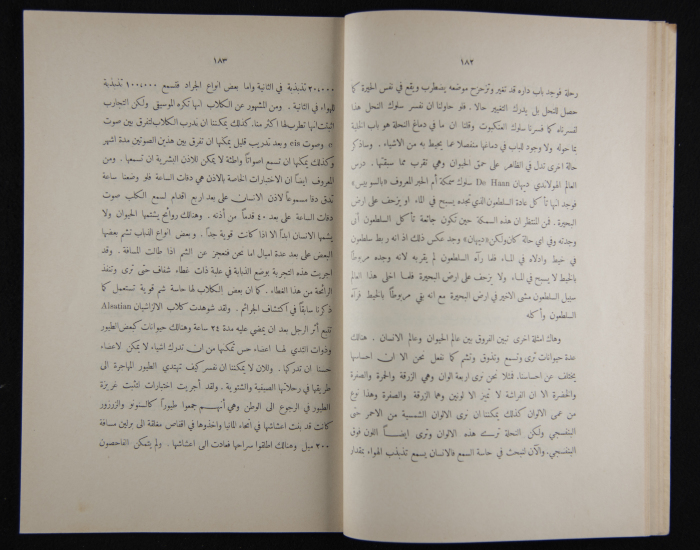 ١٨٢
رحلة فوجد باب داره قد تغير وتزحزح موضعه يضطرب ويقع في نفس الحيرة كما
حصل للنحل بل يدرك التغيير حالا . فلو حاولنا ان نفسر سلوك النحل هذا
لفسرناه كما فسرنا سلوك العنكبوت وقلنا ان ما في دماغ النحلة هو باب الخلية
بما حوله ولا وجود للباب في دماغها منفصلا عما يحيط به من الاشياء . وساذكر
حالة اخرى تدل في الظاهر على حمق الحيوان وهي تقرب مما سبقتها . درس
العالم الهولاندي ديهان De Haan سلوك سمكة أم الحبر المعروف «بالسوبيس»
فوجد انها تأكل عادة السلطعون الذي تجده يسبح في الماء او يزحف على ارض
البحيرة . فمن المنتظر ان هذه السمكة حين تكون جائعة تأكل السلطعون أنى
وجدته وفي اي حالة كان ولكن «ديهان» وجد عكس ذلك اذ انه ربط سلطعون
في خيط وادلاه في الماء فلما رآه السلطعون لم يقربه لانه وجده مربوطاً
بالخيط لا يسبح في الماء ولا يزحف على ارض البحيرة فلما اخلى هذا العالم
سبيل السلطعون مشى الاخير في ارض البحيرة مع انه بقي مربوطاً بالخيط فرآه
السلطعون وأكله
وهاك امثلة اخرى تبين الفروق بين عالم الحيوان وعالم الانسان . هنالك
عدة حيوانات ترى وتسمع وتذوق وتشم كما نفعل نحن الا ان احساسها
يختلف عن احساسنا. فمثلا نحن نرى اربعة الوان وهي الزرقة والحمرة والصفرة
والخضرة الا ان الفراشة لا تميز الا لونين وهما الزرقة والصفرة وهذا نوع
من عمى الالوان كذلك يمكننا ان نرى الالوان الشمسية من الاحمر حتى
البنفسجي ولكن النحلة ترى هذه الالوان وترى ايضاً اللون فوق
البنفسجي. والآن لنبحث في حاسة السمع فالانسان يسمع تذبذب الهواء بمقدار
١٨٣
٢٠٫٠٠٠ تذبذبة في الثانية واما بعض انواع الجراد فتسمع ١٠٠٫٠٠٠ تذبذبة
للهواء في الثانية . ومن المشهور عن الكلاب انها تكره الموسيقى ولكن التجارب
اثبتت انها تطرب لها اكثر منا. كذلك يمكننا ان ندرب الكلاب لتفرق بين صوت
وصوت cis وبعد تدريب قليل يمكنها ان تفرق بين هذين الصوتين مدة اشهر
وكذلك يمكنها ان تسمع اصواتاً واطئة لا يمكن للاذن البشرية ان تسمعها . ومن
المعروف ايضاً ان الاختبارات الخاصة بالاذن هي دقات الساعة فلو وضعنا ساعة
تدق دقا مسموعاً لاذن الانسان على بعد اربع اقدام لسمع الكلب صوت
دقات الساعة على بعد ٤٠ قدماً من أذنه . وهنالك روائح يشتمها الحيوان ولا
يشمها الانسان ابداً الا اذا كانت قوية جداً . وبعض انواع الذباب تشم بعضها
البعض على بعد عدة اميال اما نحن فنعجز عن الشم اذا طالت المسافة . وقد
اجريت هذه التجربة بوضع الذبابة في علبة ذات غطاء شفاف حتى ترى وتنفذ
الرائحة من هذا الغطاء . كما ان بعض الكلاب لها حاسة شم قوية تستعمل كما
ذكرنا سابقاً في اكتشاف الجرائم . ولقد شوهدت كلاب الالزاشيان Alsatian
تتبع أثر الرجل بعد ان يمضي عليه مدة ٢٤ ساعة وهنالك حيوانات كبعض الطيور
وذوات الثدي لها اعضاء حس تمكنها من ان تدرك اشياء لا يمكن لاعضاء
حسنا ان تدركها . وللآن لا يمكننا ان نفسر كيف تهتدي الطيور المهاجرة الى
طريقها في رحلاتها الصيفية والشتوية . ولقد أجريت اختبارات اثبتت غريزة
الطيور في الرجوع الى الوطن وهي أنهم جمعوا طيوراً كالسنونو والزرزور
كانت قد بنت اعشاشها في أنحاء المانيا واخذوها في اقفاص مغلقة الى برلين مسافة
٢٠٠ ميل وهنالك اطلقوا سراحها فعادت الى اعشاشها . ولم يتمكن الفاحصون